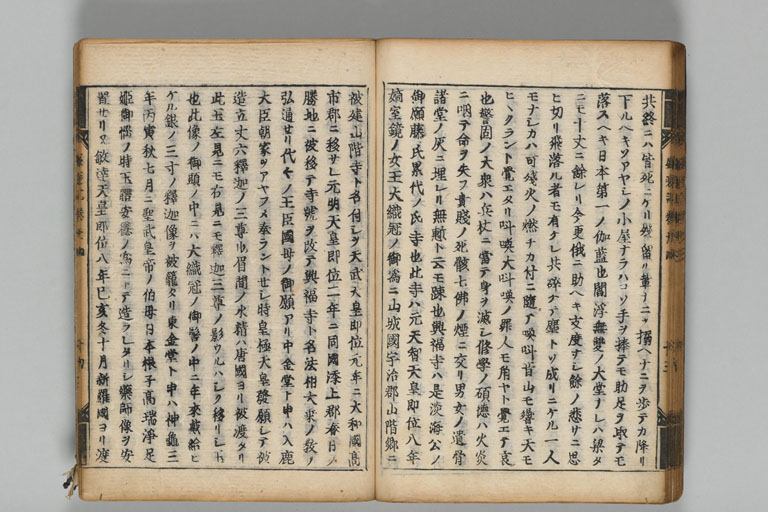 共終ニハ皆死ニケリ殘留ル輩ナニヲ搦ヘナニヲ歩テカ降リ
下ルヘキソアヤシノ小屋ナラハコソ手ヲ捧テモ助足ヲ取テモ
落スヘキ日本第一ノ伽藍也閻浮無雙ノ大堂ナレハ梁タ
ニモ十丈ニ餘レリ今更俄ニ助ヘキ支度ナシ餘ノ悲サニ思
ヒ切リ飛落ル者モ有ケレ共碎ケテ塵トソ成リニケル一人
モナシカハ可殘火ノ燃チカ付ニ隨テ喚叫音山モ響キ天モ
ヒヽクラント覺エタリ叫喚大叫喚ノ罪人モ角ヤト覺エテ哀
也警固ノ大衆ハ兵杖ニ當テ身ヲ滅シ修學ノ碩德ハ火炎
ニ咽テ命ヲ失フ貴賤ノ死骸七佛ノ煙ニ交リ男女ノ遺骨
諸堂ノ灰ニ埋レリ無慙ト云モ疎也興福寺ハ是淡海公ノ
御願藤氏累代ノ氏寺也此寺ハ元天智天皇即位八年
嫡室鏡ノ女王大織冠ノ御爲ニ山城國宇治郡山階郷ニ
被建山階寺ト名付シヲ天武天皇即位元年ニ大和國高
市郡ニ移サレ元明天皇即位二年ニ同國添上郡春日ノ
勝地ニ被移テ寺號ヲ改テ興福寺ト名法相大乘ノ教ノ
弘通セリ代々ノ王臣國母ノ御願アリ中金堂ト申ハ入鹿
大臣朝家ヲアヤフメ奉ラントセシ時皇極天皇發願シテ被
造立丈六釋迦ノ三尊也眉間ノ水精ハ唐國ヨリ被渡タリ
此玉左見ニモ右見ニモ釋迦三尊ノ影ウルハシク移リシ玉
也此像ノ御頭ノ中ニハ大織冠ノ御髻ノ中ニ年來戴給ヒ
ケル銀ノ三寸ノ釋迦像ヲ被籠タリ東金堂ト申ハ神龜三
年丙寅秋七月ニ聖武皇帝ノ伯母日本根子高瑞淨足
姫御惱ノ時玉體安穩ノ爲ニトテ造ラレタリシ藥師像ヲ安
置セリ又敏達天皇即位八年己亥冬十月新羅國ヨリ渡